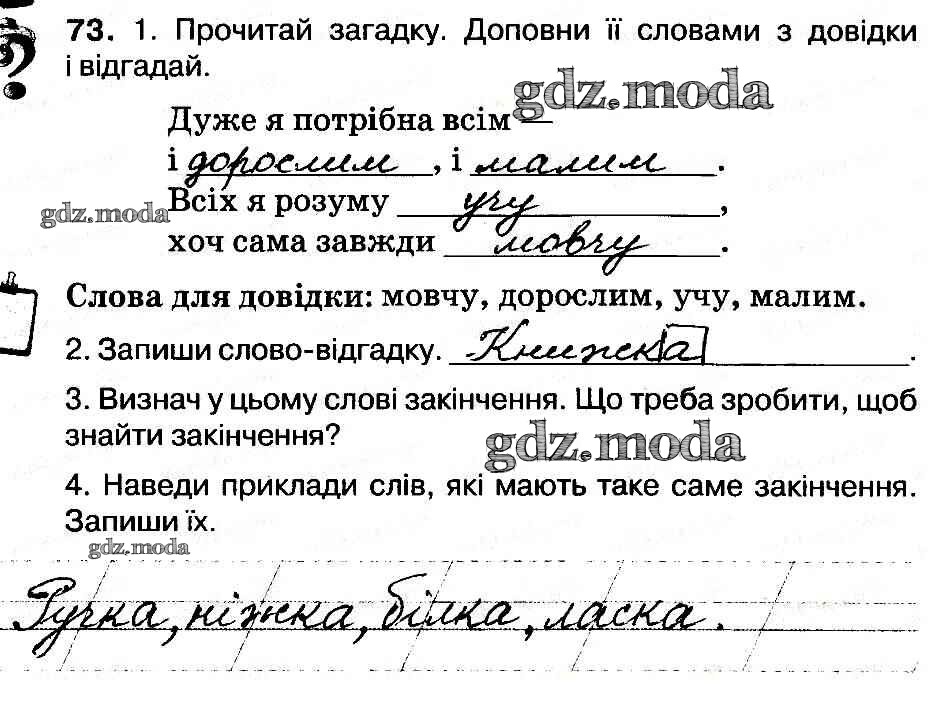 73. 1. Прочитай загадку. Доповни її словами з довідки
і відгадай.
gdz.moda
Дуже я потрібна всім —
і дорослим, і малим.
Всіх я розуму учу,
gdz.moda
хоч сама завжди мовчу.
Слова для довідки: мовчу, дорослим, учу, малим.
2. Запиши слово-відгадку. Книжка.
3. Визнач у цьому слові закінчення. Що треба зробити, щоб
знайти закінчення?
gdz.moda
4. Наведи приклади слів, які мають таке саме закінчення.
Запиши їх.
gdz.moda
Ручка, ніжка, білка, ласка.